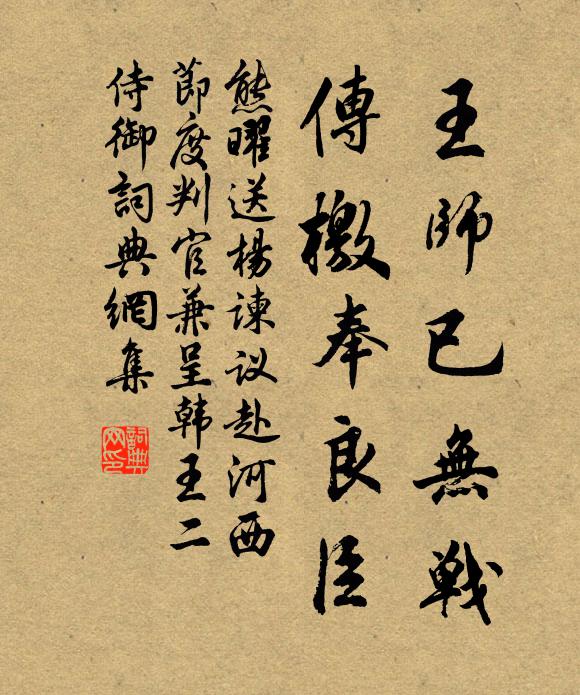 王師已無戰
傳檄奉良臣
熊曜送楊諫议赴河西
節度判官兼呈韩王二
侍御詞典網集
詞典网印